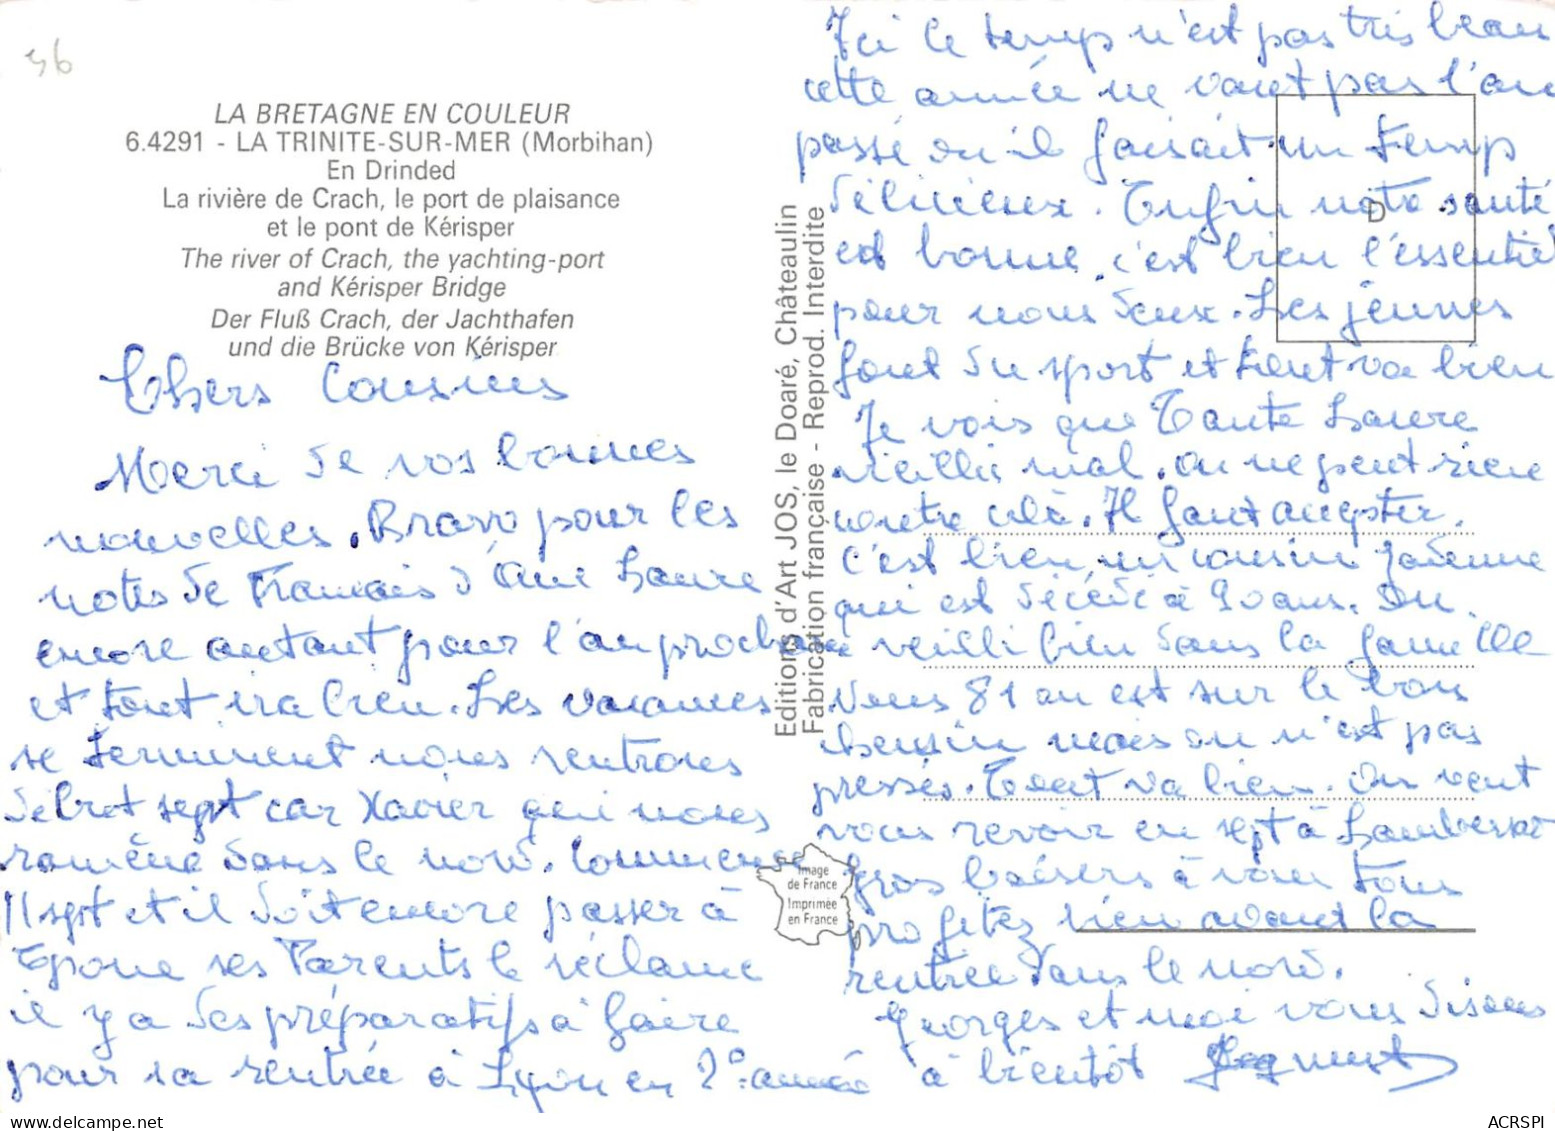 56
LA BRETAGNE EN COULEUR
6.4291 - LA TRINITE-SUR-MER (Morbihan)
En Drinded
La rivière de Crach, le port de plaisance
et le pont de Kérisper
The river of Crach, the yachting-port
and Kérisper Bridge
Der Fluß Crach, der Jachthafen
und die Brücke von Kérisper
Chers Cousins
Merci de vos bonnes
nouvelles. Bravo pour les
notes de Français d'Anne Laure
encore autant pour l'an prochain
et tout ira bien. Les vacances
se terminent nous rentrons
début sept car Xavier qui nous
ramène dans le nord. Commence
11 sept et il doit encore passer à
Epone ses Parents le réclame
il y a des préparatifs à faire
pour sa rentrée à Lyon en 2° année
Editions d'Art JOS, le Doaré, Châteaulin
Fabrication française - Reprod. Interdite
Image
de France
Imprimée
en France
D
Ici le temps n'est pas très beau
cette année ne vaut pas l'an
passé ou il faisait un temps
délicieux. Enfin notre santé
est bonne, c'est bien l'essentiel
pour nous deux. Les jeunes
font du sport et tout va bien
Je vois que Tante Laure
vieillis mal. On ne peut rien
contre celà. Il faut accepter.
C'est bien un cousin
qui est décédé à 90 ans. On
vieilli bien dans la famille
Nous 81 an est sur le bon
chemin mais on n'est pas
pressés. Tout va bien. On veut
vous revoir en sept à Lambersart
Gros baisers à vous tous
profitez bien avant la
rentrée dans le nord.
Georges et moi vous disons
à bientôt
ACRSPI